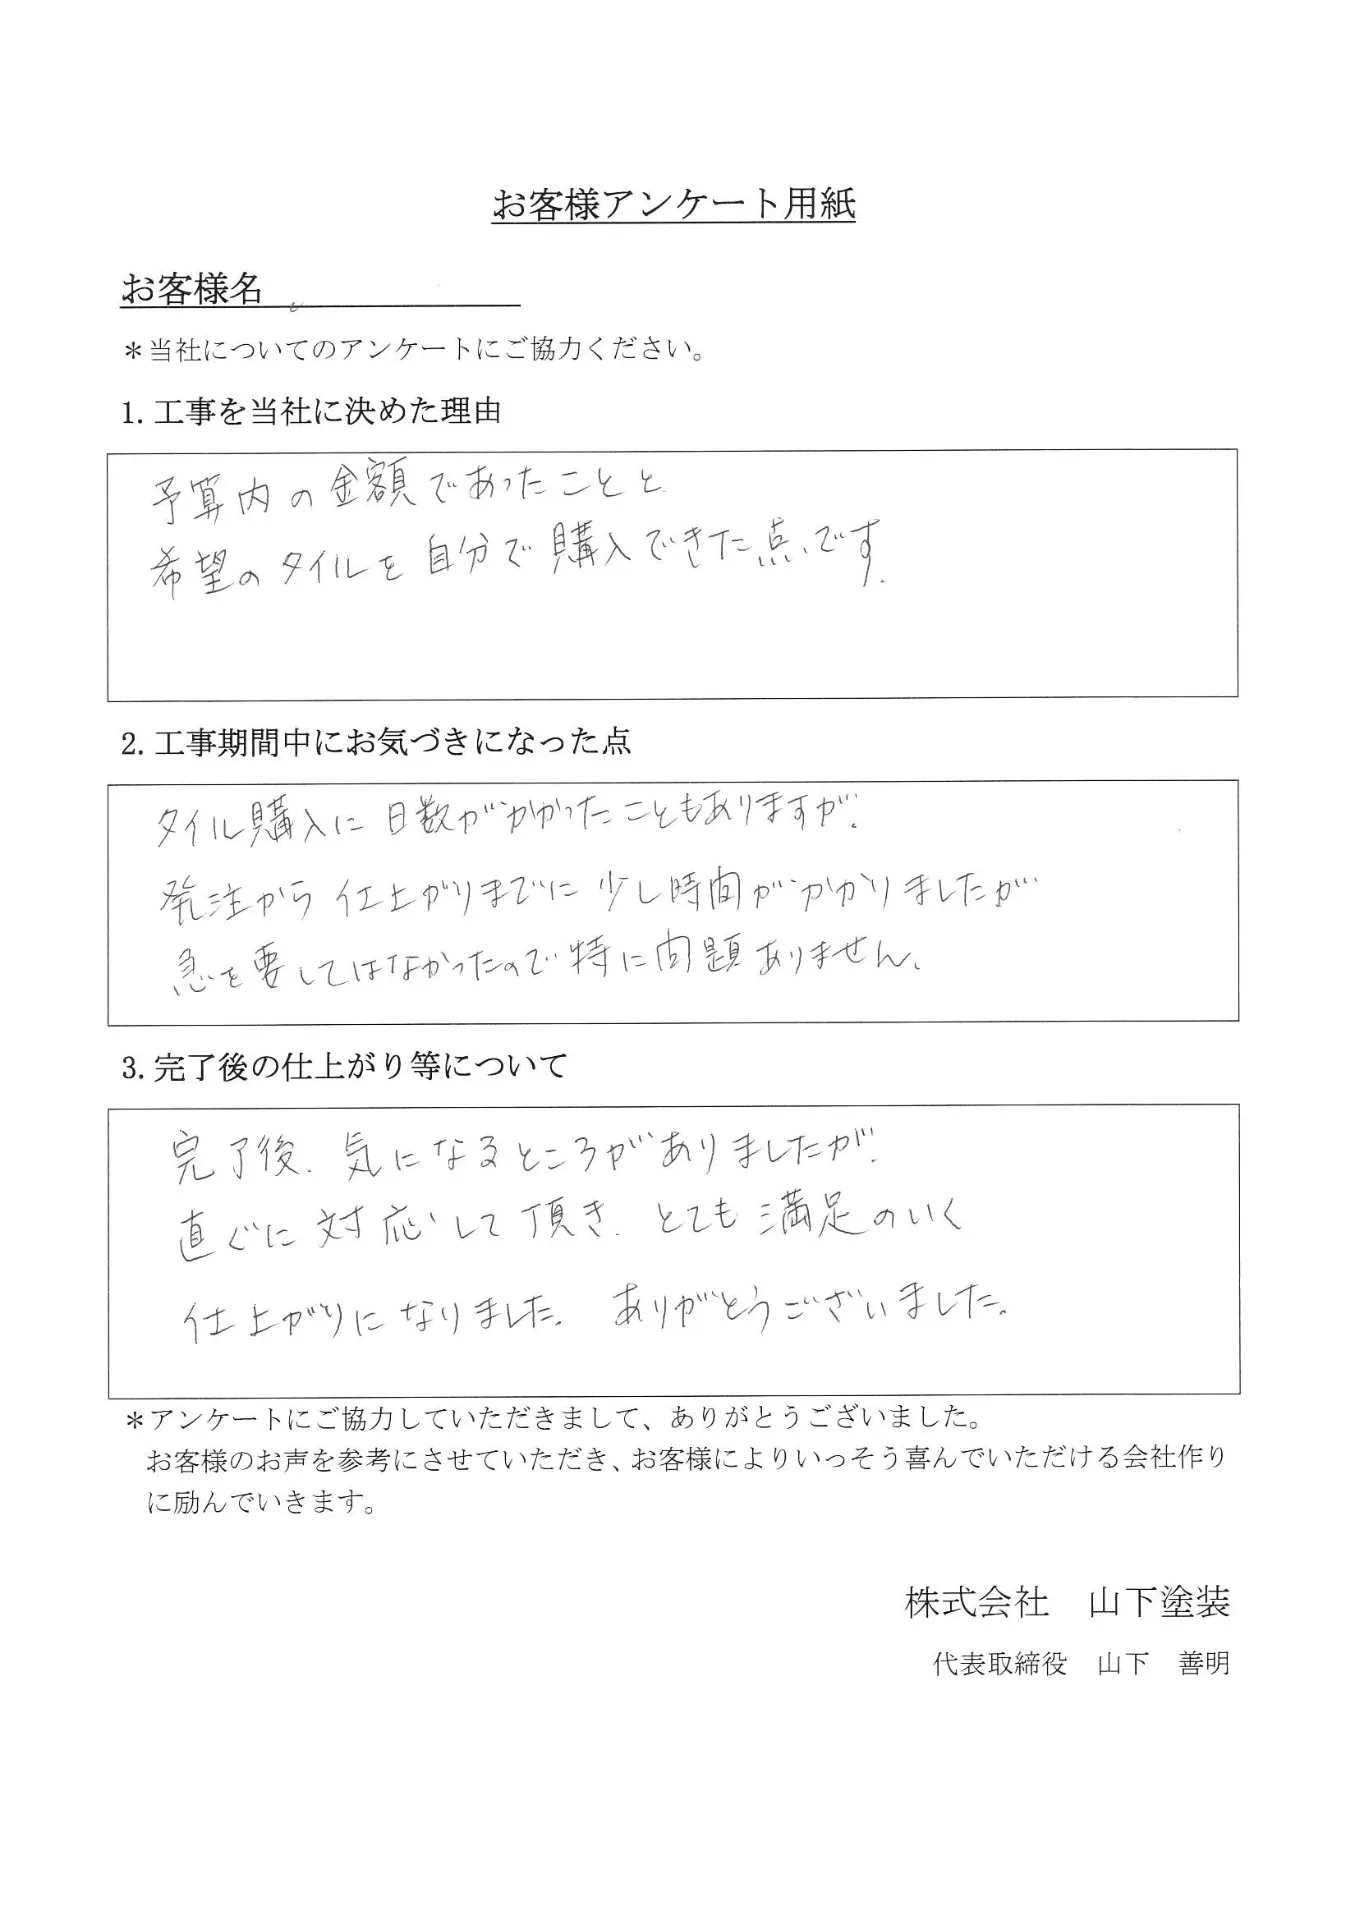 お客様アンケート用紙
お客様名
＊当社についてのアンケートにご協力ください。
1. 工事を当社に決めた理由
予算内の金額であったことと
希望のタイルを自分で購入できた点です.
2. 工事期間中にお気づきになった点
タイル購入に日数がかかったこともありますが.
発注から仕上がりまでに少し時間がかかりましたが
急を要してはなかったので特に問題ありません.
3. 完了後の仕上がり等について
完了後. 気になるところがありましたが.
直ぐに対応して頂き. とても満足のいく
仕上がりになりました. ありがとうございました.
＊アンケートにご協力していただきまして、ありがとうございました。
お客様のお声を参考にさせていただき、お客様によりいっそう喜んでいただける会社作り
に励んでいきます。
株式会社　山下塗装
代表取締役　山下　善明